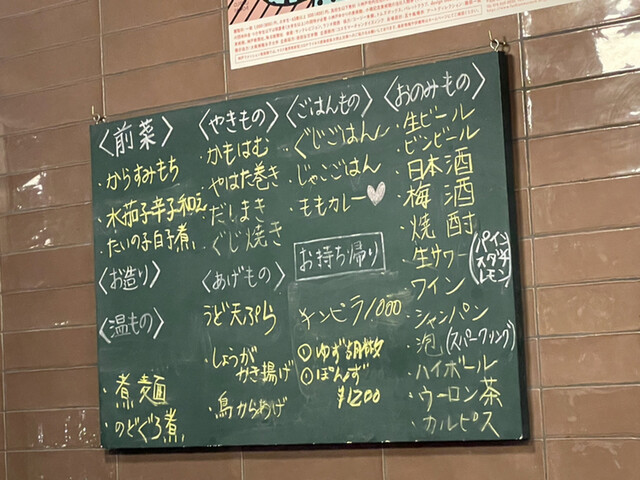 〈前菜〉
・からすみもち
・水茄子辛子和え
・たいの子白子煮
〈お造り〉
〈温もの〉
・煮麺
・のどぐろ煮
〈やきもの〉
・かもはむ
・やはた巻き
・だしまき
・ぐじ焼き
〈あげもの〉
うど天ぷら
・しょうが
かき揚げ
・鳥からあげ
〈ごはんもの〉
・ぐじごはん
・じゃこごはん
・ももカレー♥
お持ち帰り
チンピラ1000
①ゆず胡椒
①ぽんず
¥1200
〈おのみもの〉
・生ビール
・ビンビール
・日本酒
・梅酒
・焼酎
・生サワー(パイン
スダチ
レモン)
・ワイン
・シャンパン
・泡(スパークリング)
・ハイボール
・ウーロン茶
・カルピス